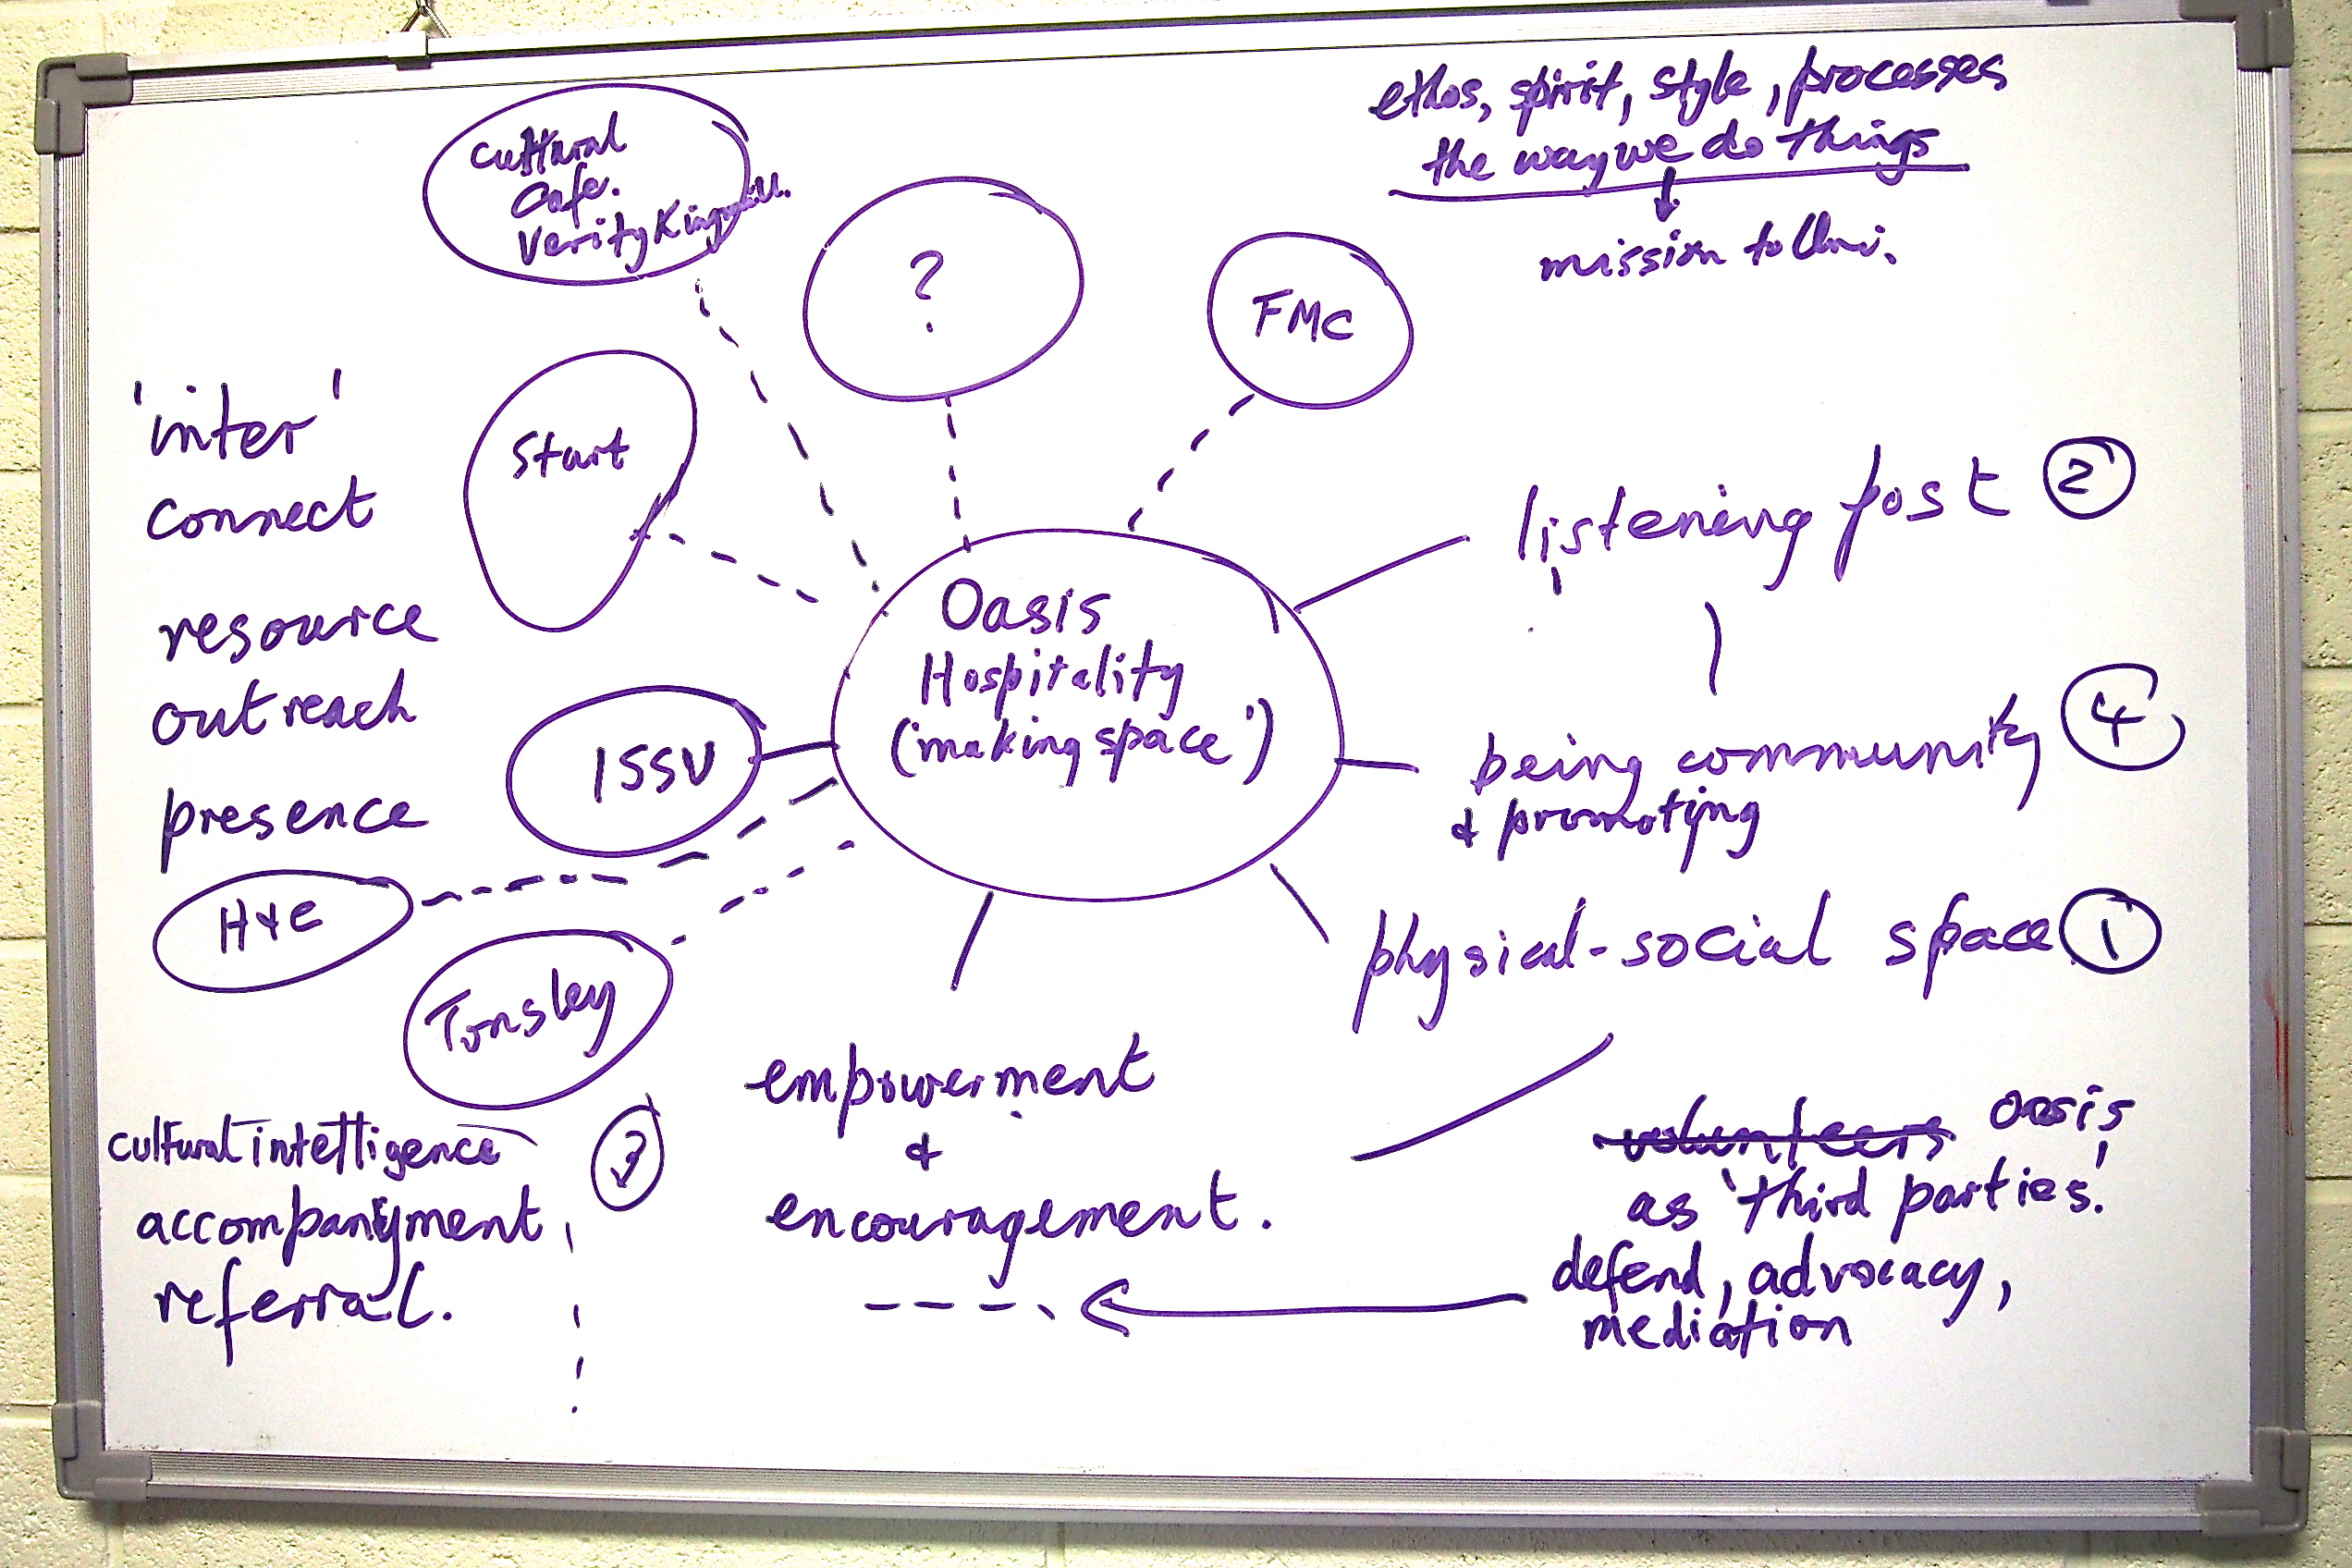 ethos, spirit, style, processes
the way we do things
mission to Uni.
cultural
Cafe.
Verity
?
FMC
Start
'inter'
connect
resource
outreach
presence
Oasis
Hospitality
('making space')
ISSU
H+E
Tonsley
listening post 2
being community 4
& promoting
physical-social space 1
empowerment
&
encouragement.
3
cultural intelligence
accompanyment
referral.
volunteers Oasis
as 'third parties'.
defend, advocacy,
mediation